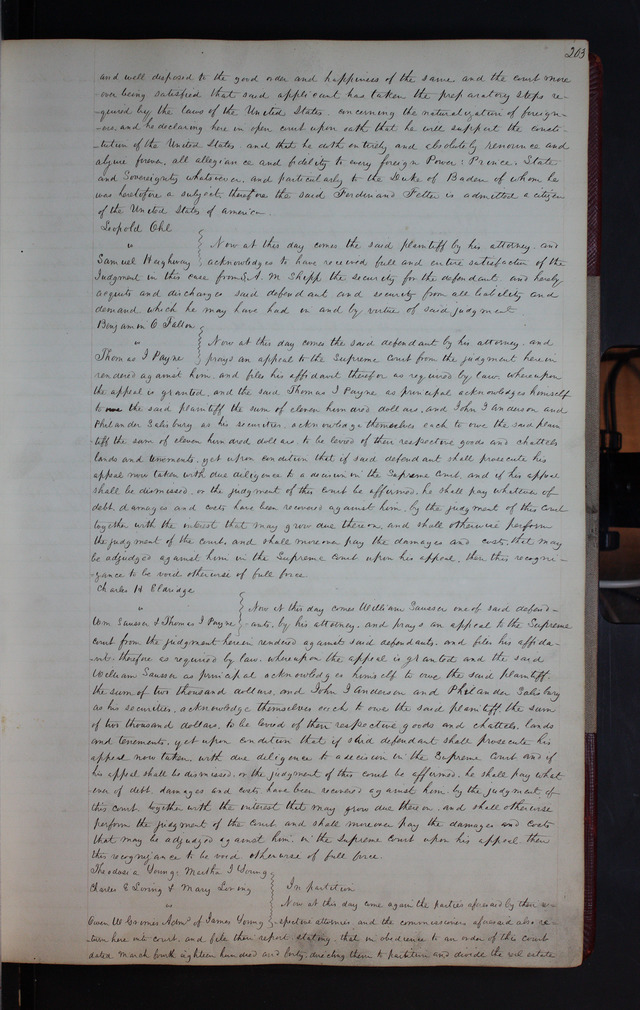 203
and well disposed to the good order and happiness of the same and the court more
-over being satisfied that said applicant has taken the preparatory steps re-
-quired by the laws of the United States, concerning the naturalization of foreign-
-ers, and he declaring here in open court upon oath that he will support the consti-
-tution of the United States, and that he doth entirely and absolutely renounce and
abjure forever, all allegiance and fidelity to every foreign Power, Prince, State
and Sovereignty whatsoever, and particularly to the Duke of Baden of whom he
was heretofore a subject, therefore the said Ferdinand Fetter is admitted a citizen
of the United States of america.
Leopold Ohl
" Now at this day comes the said plaintiff by his attorney, and
Samuel Highway acknowledges to have received full and entire satisfaction of the
Judgment in this case from S. A. M. Shepp the security for the defendant and hereby
acquits and discharges said defendant and security from all liability and
demand which he may have had in and by virtue of said judgment
Benjamin O Fallon
" Now at this day comes the said defendant by his attorney, and
Thomas I Payne prays an appeal to the Supreme Court from the judgment herein
rendered against him, and files his affidavit therefor as required by law, whereupon
the appeal is granted, and the said Thomas I Payne as principal acknowledges himself
to owe the said plaintiff the sum of eleven hundred dollars, and John I Anderson and
Philander Salisbury as his securities, acknowledge themselves each to owe the said plain
tiff the sum of eleven hundred dollars, to be levied of their respective goods and chattels
lands and tenements, yet upon condition that if said defendant shall prosecute his
appeal now taken with due diligence to a decision in the Supreme Court, and if his appeal
shall be dismissed, or the judgment of this court be affirmed, he shall pay whatever of
debt, damages and costs have been recovered against him, by the judgment of this Court
together with the interest that may grow due thereon, and shall otherwise perform
the judgment of the Court, and shall moreover pay the damages and costs, that may
be adjudged against him in the Supreme Court upon his appeal, then this recogni-
-zance to be void otherwise of full force
Charles H Eldridge
" Now at this day comes William Sausser one of said defend-
Wm Sausser & Thomas I Payne -ants, by his attorney, and prays an appeal to the Supreme
court from the judgment herein rendered against said defendants, and files his affida-
-vit, therefore as required by law, whereupon the appeal is granted and the said
William Sausser as principal acknowledges himself to owe the said plaintiff,
the sum of two thousand dollars, and John I Anderson and Philander Salisbury
as his securities, acknowledge themselves each to owe the said plaintiff, the sum
of two thousand dollars, to be levied of their respective goods and chattels, lands
and tenements, yet upon condition that if said defendant shall prosecute his
appeal now taken, with due diligence to a decision in the Supreme Court and if
his appeal shall be dismissed, or the judgment of this court be affirmed, he shall pay what
ever of debt, damages and costs, have been recovered against him, by the judgment of
this court, together with the interest that may grow due thereon, and shall otherwise
perform the judgment of the Court and shall moreover pay the damages and costs
that may be adjudged against him in the Supreme Court upon his appeal then
this recognizance to be void otherwise of full force.
Theodosea Young, Martha I Young
Charles E Loring & Mary Loring In partition
" Now at this day come again the parties aforesaid by their
Owen W Grimes Admr of James Young -spective attornies, and the commissioners aforesaid also re-
-turn here into court, and file their report stating, that in obedience to an order of this court
dated March fourth eighteen hundred and forty, directing them to partition and divide the real estate